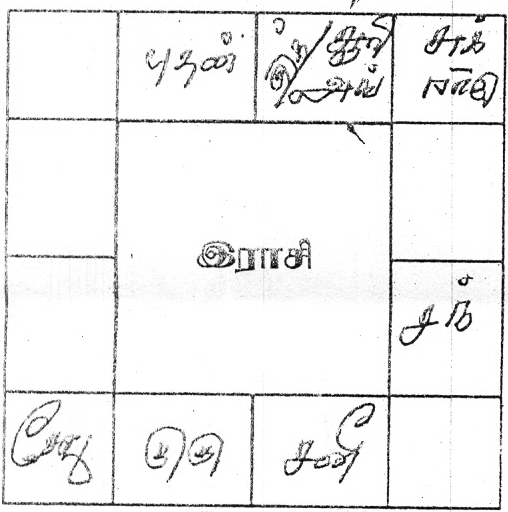 புதன்
சூரி
சுக்
ராகு
இராசி
சந்
கேது
குரு
சனி